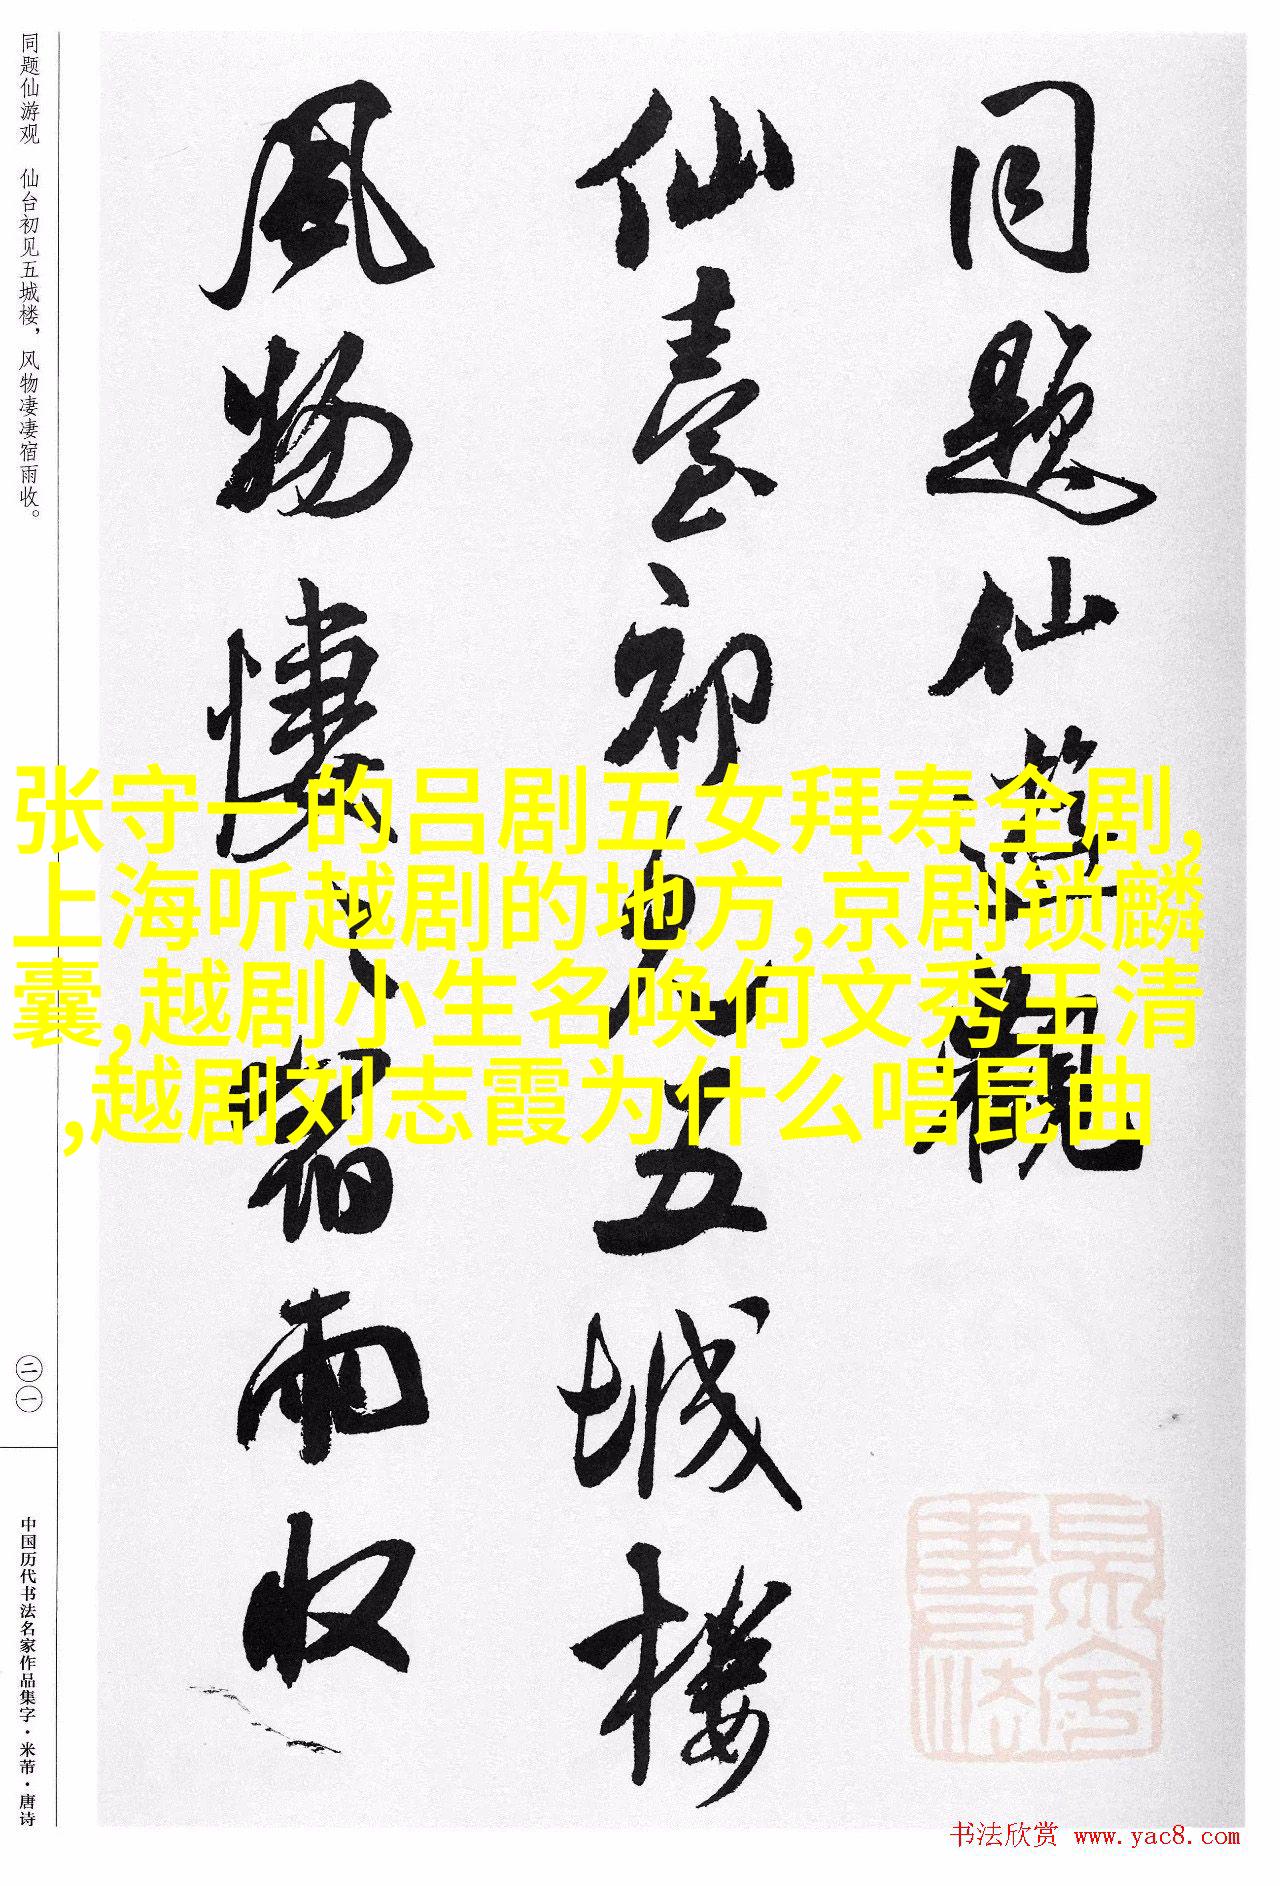 同题仙游观 仙台初见五城楼，风物凄凄宿雨收。
同题仙游觀
仙臺初见五城楼
风物悽〻宿雨收
张守一的吕剧五女拜寿全剧,
上海听越剧的地方,京剧锁麟
囊,越剧小生名唤何文秀王清
,越剧刘志霞为什么唱昆曲
二一
中国历代书法名家作品集字·米芾·唐诗
书法欣赏 www.yac8.com